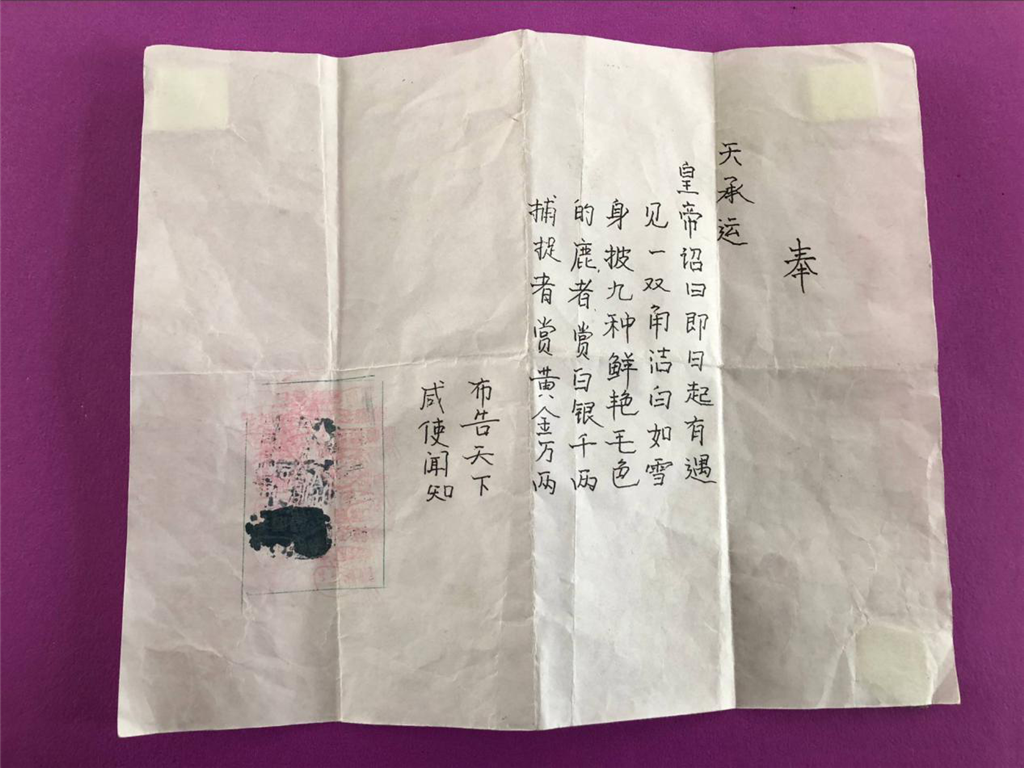 奉
天承运
皇帝诏曰即日起有遇
见一双角洁白如雪
身披九种鲜艳毛色
的鹿者赏白银千两
捕捉者赏黄金万两
布告天下
咸使闻知